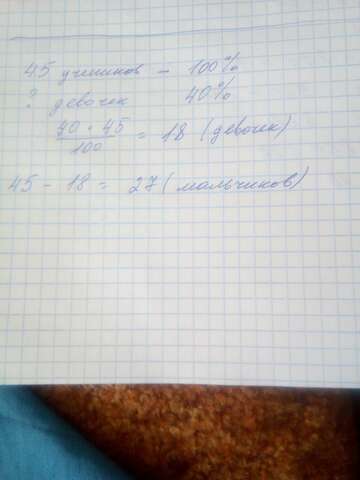 45 учеников - 100%
? девочек 40%
40 • 45 / 100 = 18 (девочек)
45 - 18 = 27 (мальчиков)